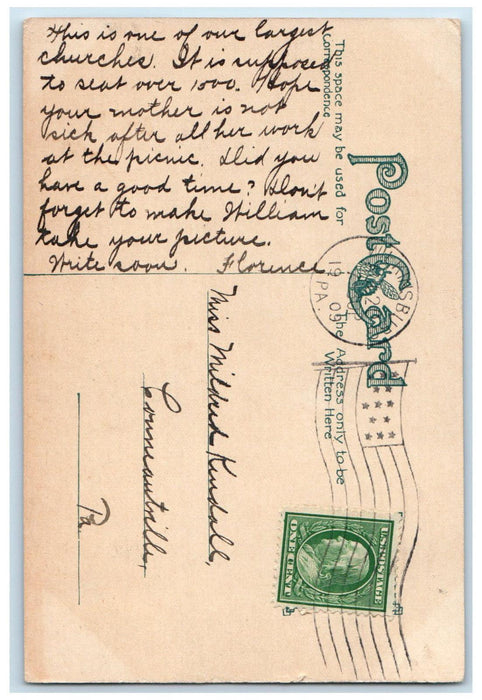 This is one of our largest
churches. It is supposed
to seat over 1500. Hope
your mother is not
sick after all her work
at the picnic. Did you
have a good time? Don't
forget to make William
take your picture.
Write soon. Florence
This space may be used for
Correspondence
Post Card
The Address only to be
Written Here
PA.
Miss Mildred Kendall,
Conneautville,
Pa.
U.S. POSTAGE
ONE CENT